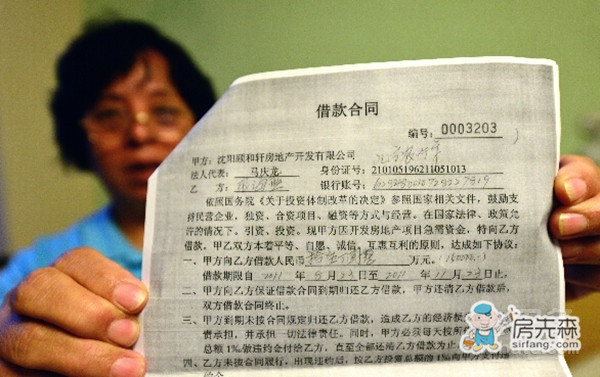 借款合同
编号：0003203
甲方：沈阳颐和轩房地产开发有限公司
法人代表：马庆龙 身份证号：210105196211051013
乙 方： 银行账号：
依照国务院《关于投资体制改革的决定》参照国家相关文件，鼓励支
持民营企业，独资、合资项目、融资等方式与经营。在国家法律、政策允
许的情况下。引资、投资。现甲方因开发房地产项目急需资金，特向乙方
借款，甲乙双方本着平等、自愿、诚信、互惠互利的原则，达成如下协议：
一、甲方向乙方借款人民币 万元。
借款期限自 2011 年 9 月 23 日至 2011 年 11 月 23 日止。
二、甲方向乙方保证借款合同到期归还乙方借款，甲方还清乙方借款后，
双方借款合同终止。
三、甲方到期未按合同规定归还乙方借款，造成乙方的经济
责承担，并承担一切法律责任。同时，甲方必须每天按
总额1%做违约金付给乙方，直至全部还清乙方借款为
四、乙方未按合同履行，出现违约后，按乙方投资总额的1%向甲方支付
房先森
sirfang.com